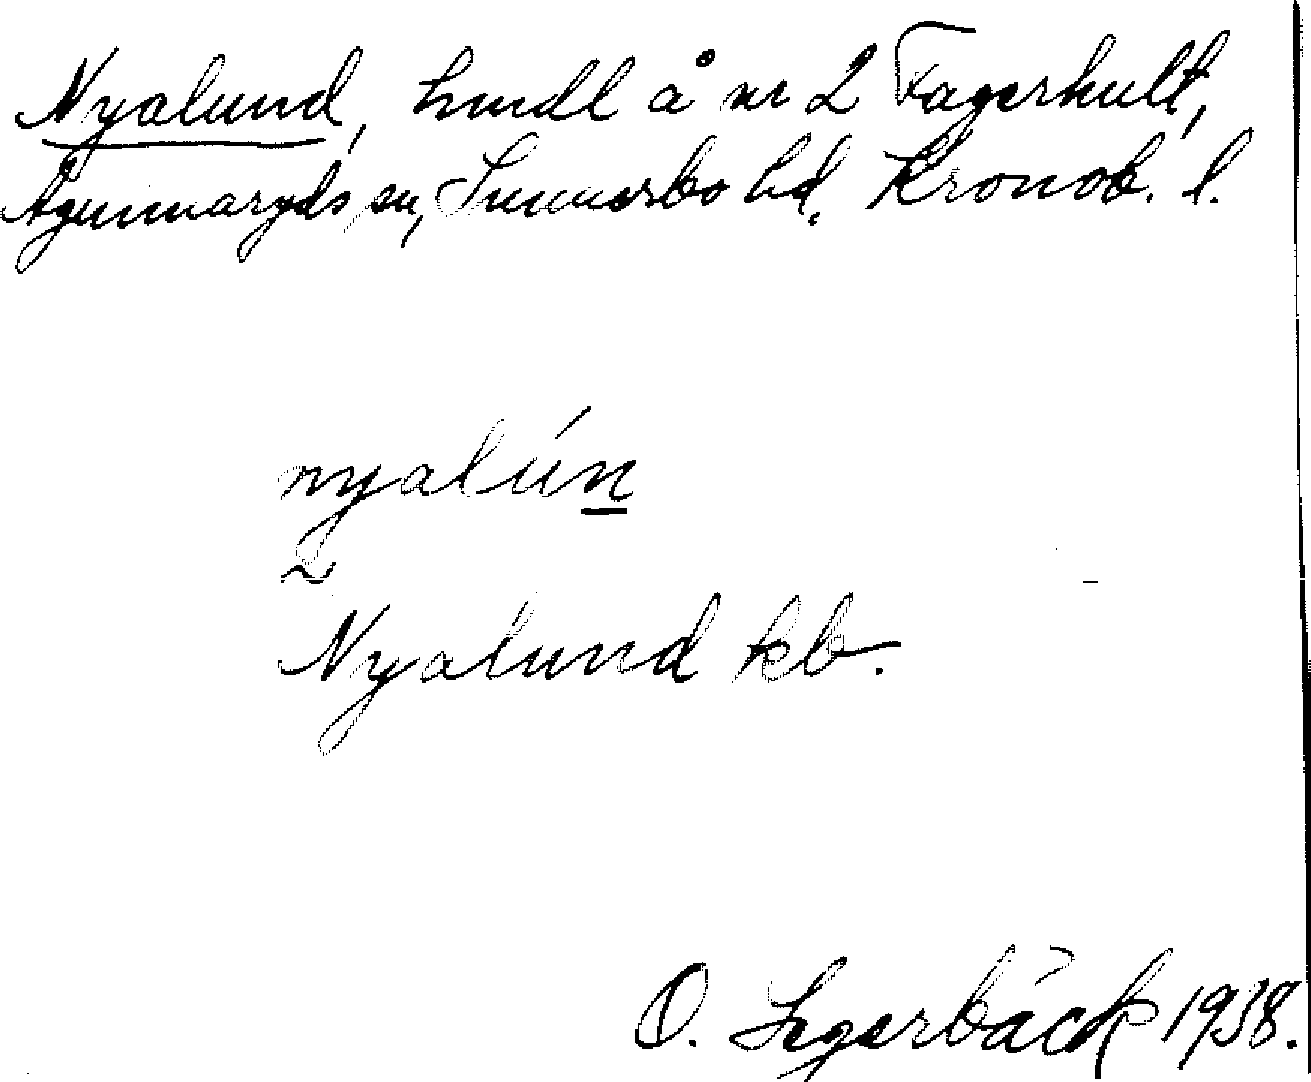 Nyalund, hmdl å nr 2 Fagerhult,
Agunnaryds sn, Sunnerbo hd. Kronob. l.
nyalún
Nyalund kb.
O. Segerbäck 1938.